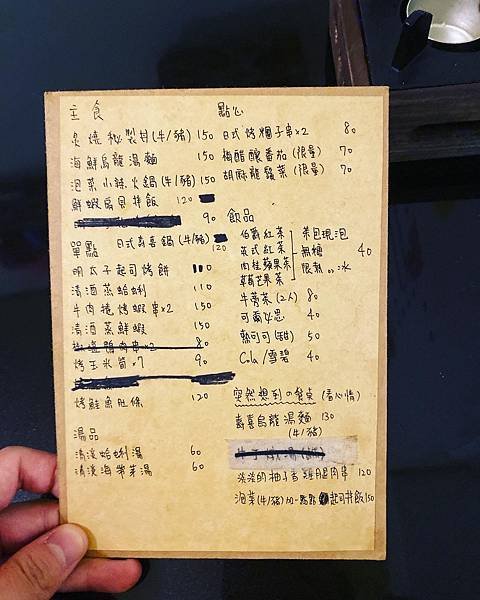 主食
炙燒秘製丼(牛/豬) 150
海鮮烏龍湯麵 150
泡菜小辣火鍋(牛/豬) 150
鮮蝦扇貝拌飯 120
90
單點
日式壽喜鍋(牛/豬) 120
明太子起司烤餅
清酒蒸蛤蜊 110
牛肉捲烤蝦串×2 150
清酒蒸鮮蝦 150
80
烤玉米筍×7 90
烤鮭魚肚條 120
湯品
清淡蛤蜊湯 60
清淡海帶芽湯 60
點心
日式烤糰子串×2 80
梅醋釀番茄(限量) 70
胡麻龍鬚菜(限量) 70
飲品
伯爵紅茶
英式紅茶
肉桂蘋果茶
草莓芒果茶
茶包現泡
無糖 40
限熱 or 冰
牛蒡茶(2人) 80
可爾必思 40
熱可可(甜) 50
Cola/雪碧 40
突然想到の餐桌(看心情)
壽喜烏龍湯麵 130
(牛/豬)
淡淡的柚子香雞腿肉串 120
泡菜(牛/豬)加一點點起司拌飯150